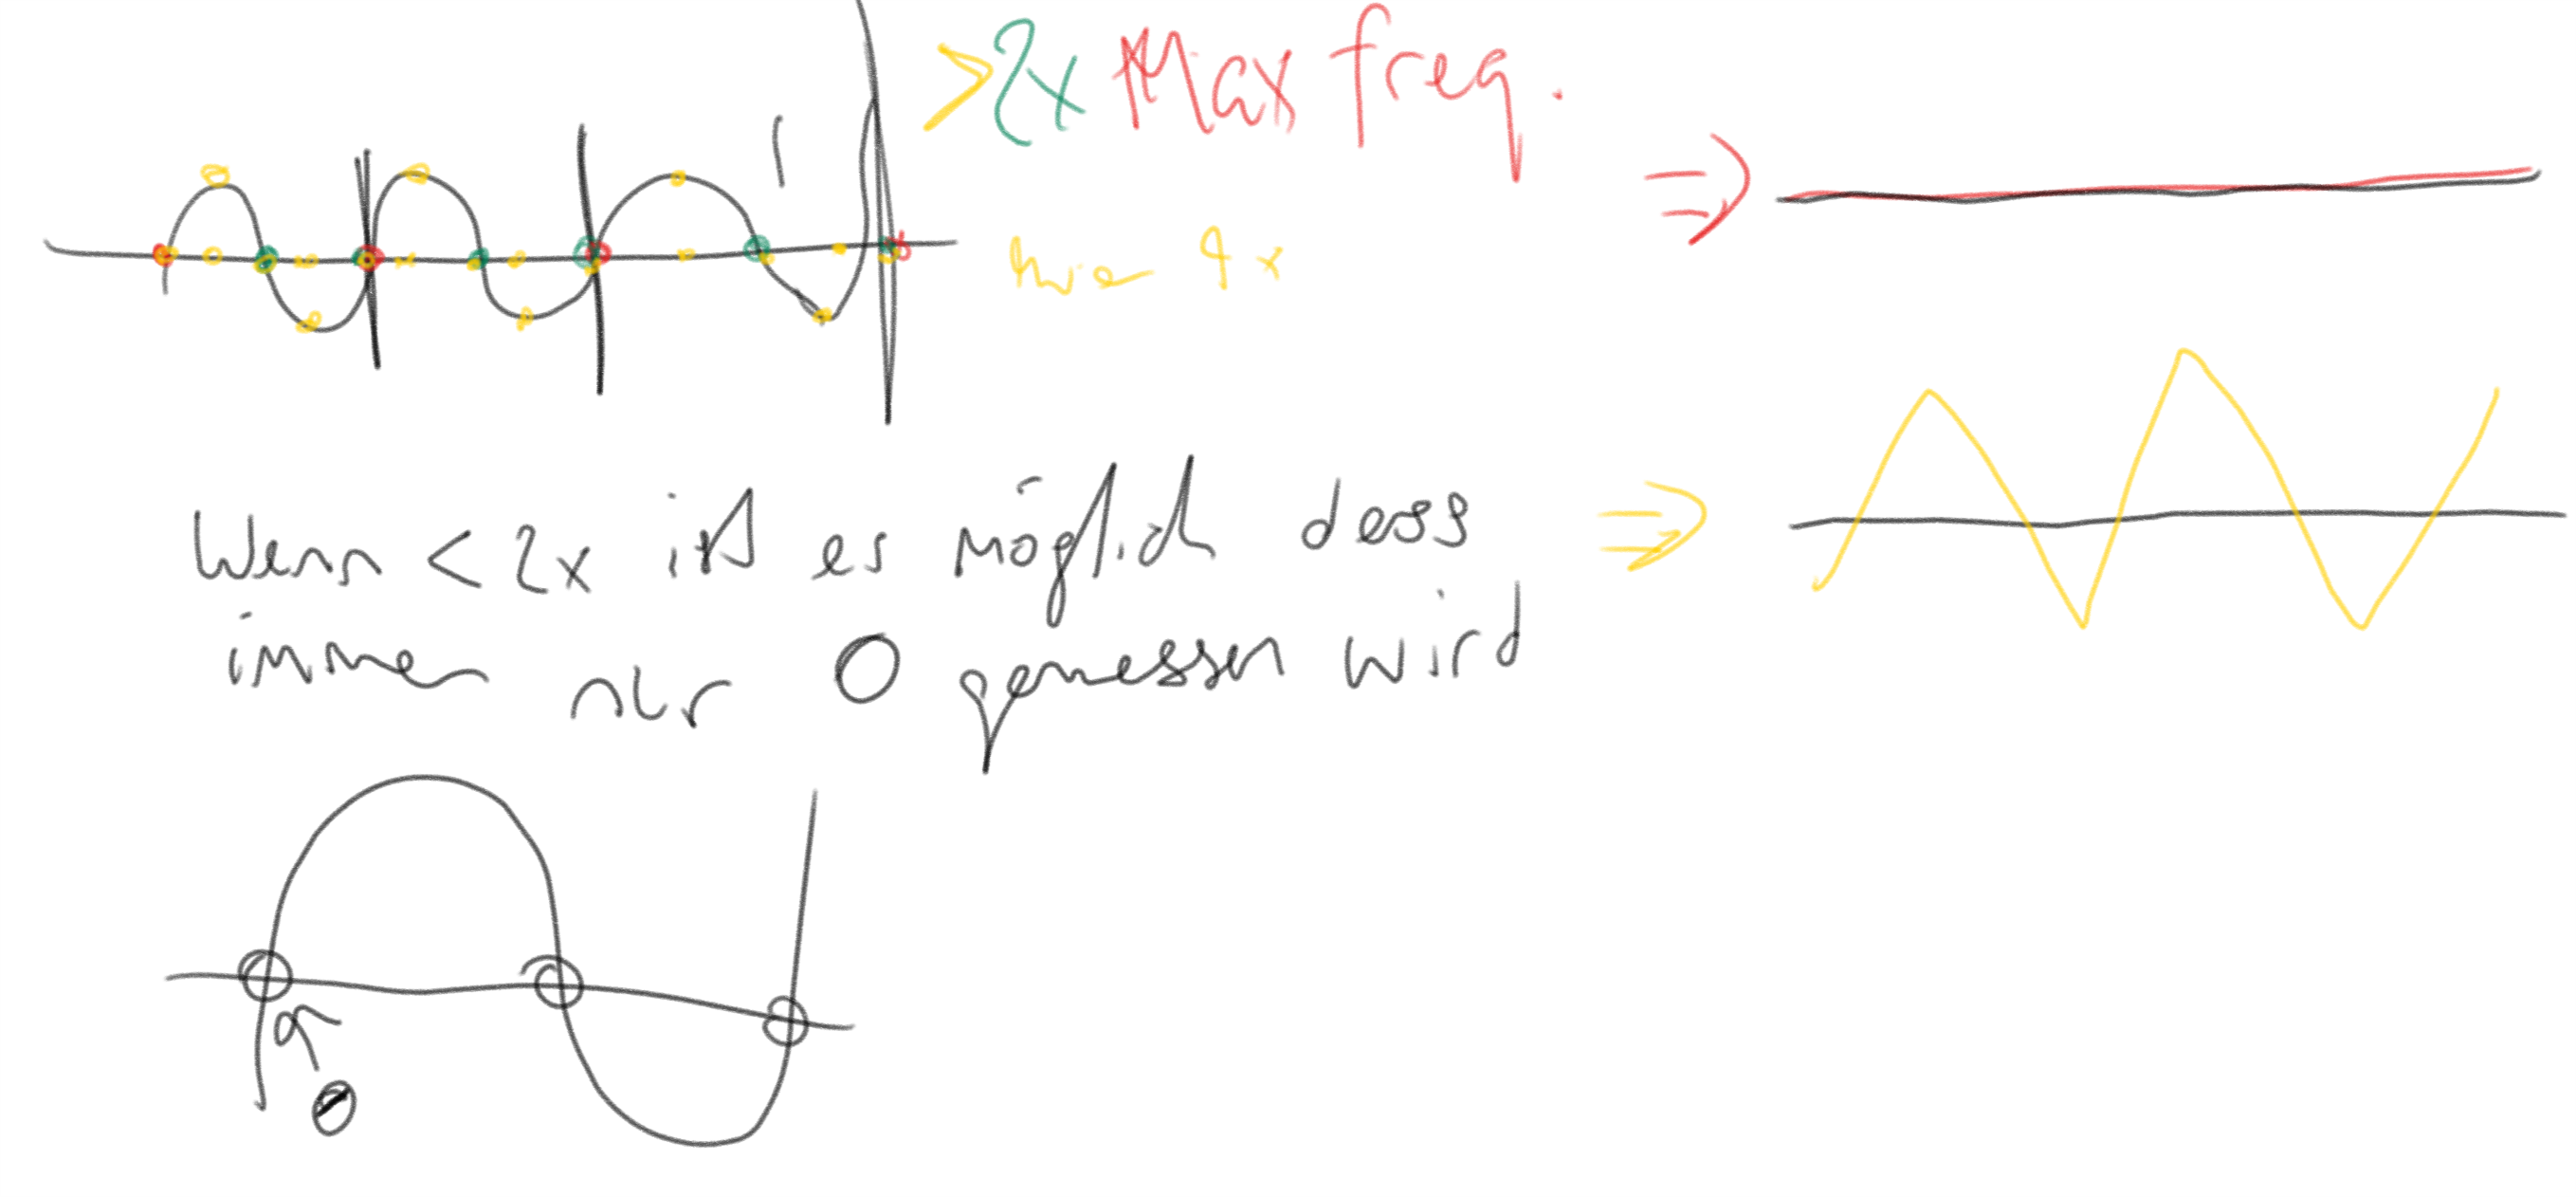 >2x Max freq.
hier 4x
Wenn < 2x ist es möglich dass
immer nur 0 gemessen wird
0